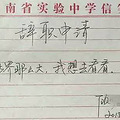 南省实验中学信
辞职申请
世界那么大，我想去看看。